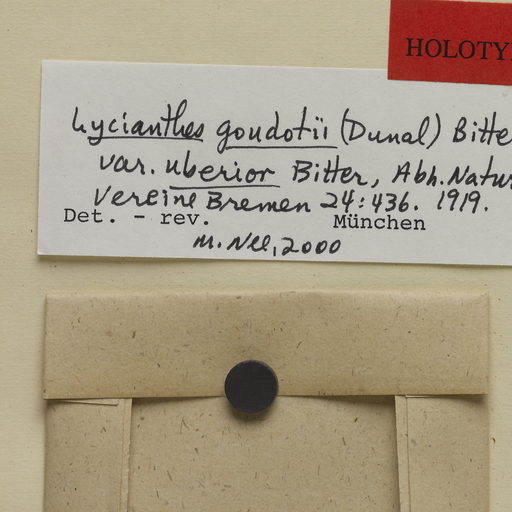 HOLOTY
Lycianthes goudotii (Dunal) Bitte
var. uberior Bitter, Abh. Natur
Vereine Bremen 24:436. 1919.
Det. - rev. München
M. Nee, 2000